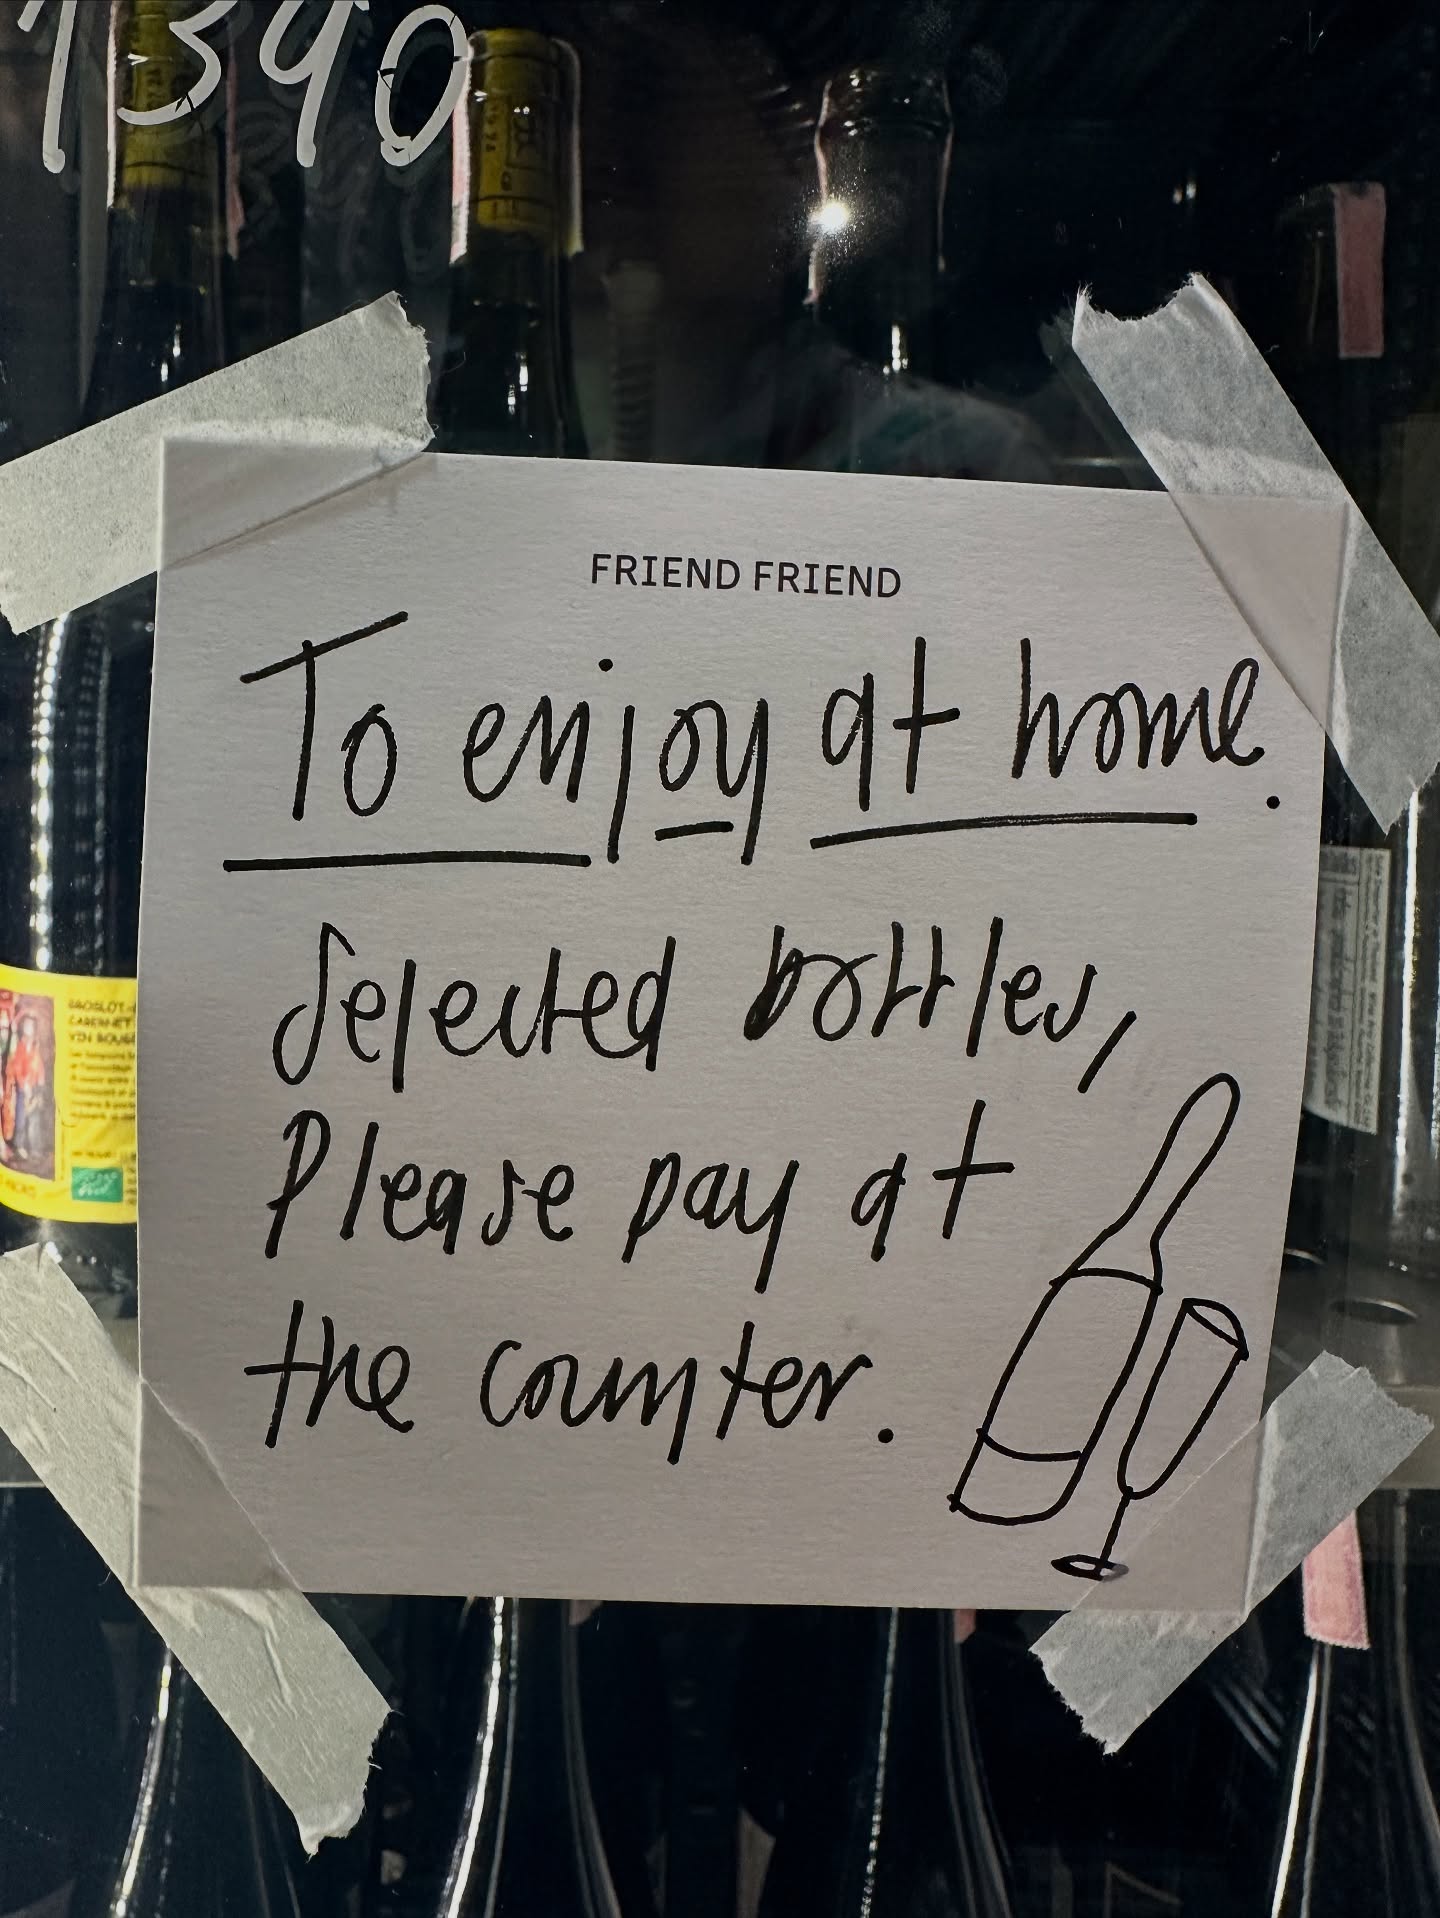 1390
FRIEND FRIEND
To enjoy at home.
Selected bottles,
Please pay at
the counter.
CABERNET
VIN ROUGE